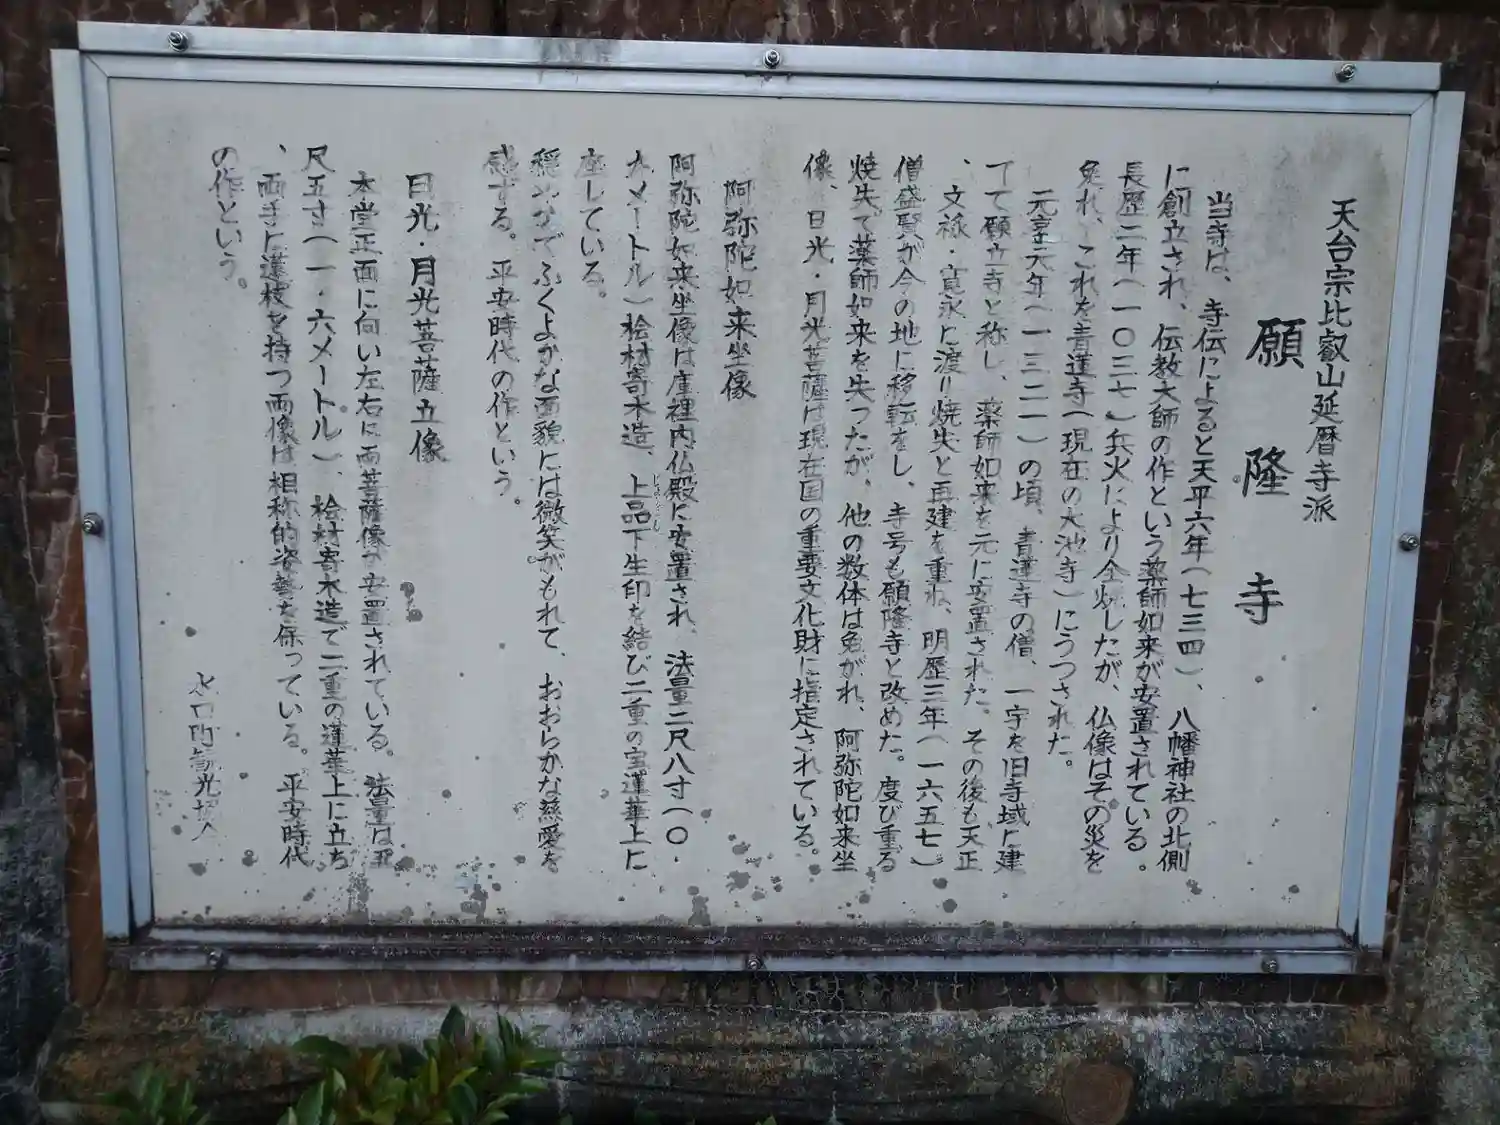 天台宗比叡山延暦寺派
願隆寺
当寺は、寺伝によると天平六年（七三四）、八幡神社の北側
に創立され、伝教大師の作という薬師如来が安置されている。
長歴二年（一〇三七）兵火により全焼したが、仏像はその災を
免れ、これを青蓮寺（現在の大池寺）にうつされた。
元享元年（一三二一）の頃、青蓮寺の僧、一宇を旧寺域に建
てて願立寺と称し、薬師如来を元に安置された。その後も天正
、文禄・寛永に渡り焼失と再建を重ね、明歴三年（一六五七）
僧盛賢が今の地に移転をし、寺号も願隆寺と改めた。度び重る
焼失で薬師如来を失つたが、他の数体は免がれ、阿弥陀如来坐
像、日光・月光菩薩は現在国の重要文化財に指定されている。
阿弥陀如来坐像
阿弥陀如来坐像は庫裡内仏殿に安置され、法量二尺八寸（〇・
九メートル）桧材寄木造、上品下生印を結び二重の宝蓮華上に
座している。
穏やかでふくよかな面貌には微笑がもれて、おおらかな慈愛を
感ずる。平安時代の作という。
日光・月光菩薩立像
本堂正面に向い左右に両菩薩像が安置されている。法量は五
尺五寸（一・六メートル）、桧材寄木造で二重の蓮華上に立ち
、両手に蓮枝を持つ両像は相称的姿勢を保っている。平安時代
の作という。
水口町観光協会